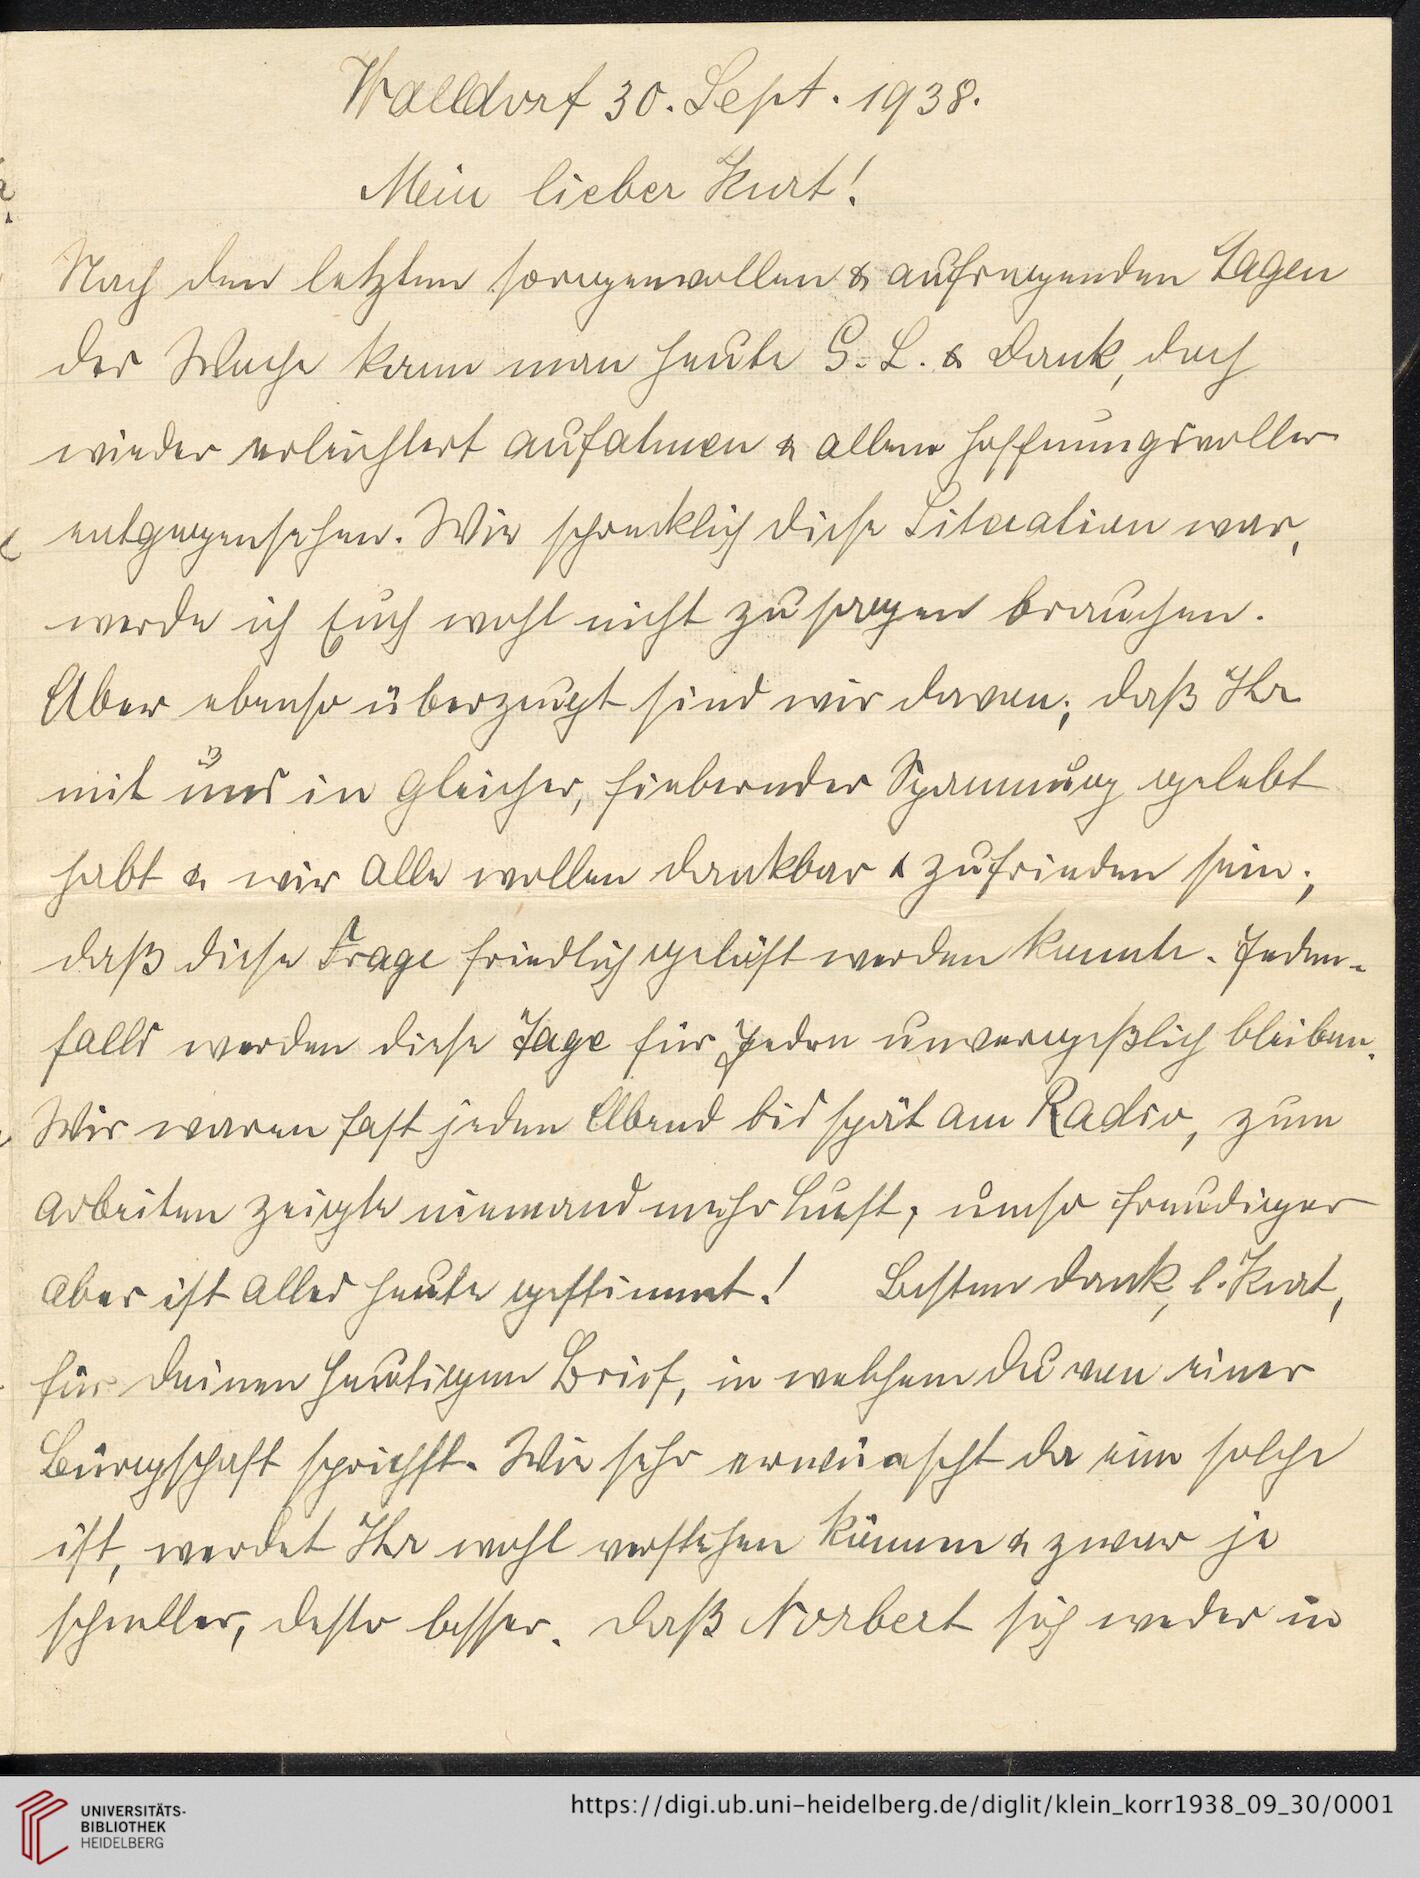 Walldorf 30. Sept. 1938.
Mein lieber Kurt!
Nach den letzten sorgenvollen & aufregenden Tagen
der Woche kann man heute G. L. & Dank, doch
wieder erleichtert aufatmen & allem hoffnungsvoller
entgegensehen. Wie schrecklich diese Situation war,
werde ich Euch wohl nicht zu sagen brauchen.
Aber ebenso überzeugt sind wir davon, daß Ihr
mit uns in gleicher, fiebernder Spannung gelebt
habt & wir alle wollen dankbar & zufrieden sein,
daß diese Frage friedlich gelöst werden konnte. Jeden-
falls werden diese Tage für Jeden unvergeßlich bleiben.
Wir waren fast jeden Abend bis spät am Radio, zum
arbeiten zeigte niemand mehr Lust, umso freudiger
aber ist alles heute gestimmt! Besten Dank, l. Kurt,
für Deinen heutigen Brief, in welchem Du von einer
Bürgschaft sprichst. Wie sehr erwünscht da eine solche
ist, werdet Ihr wohl verstehen können & zwar je
schneller, desto besser. Daß Norbert sich weder in
UNIVERSITÄTS-
BIBLIOTHEK
HEIDELBERG
https://digi.ub.uni-heidelberg.de/diglit/klein_korr1938_09_30/0001